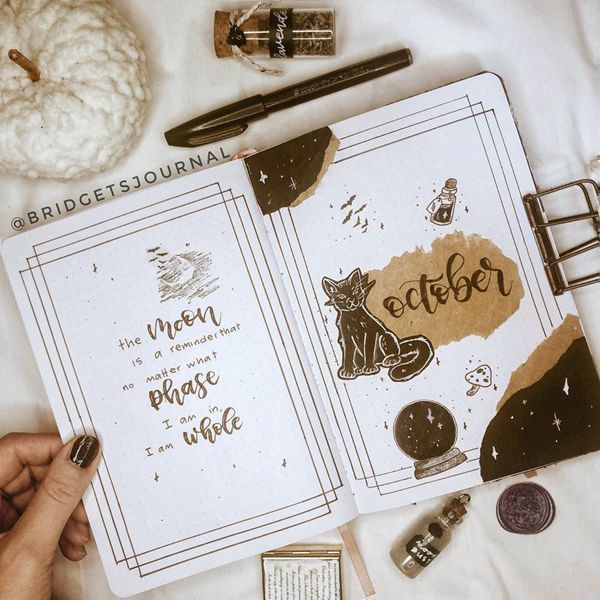 @BRIDGETSJOURNAL
the moon
is a reminder that
no matter what
phase
I am in,
I am whole
october